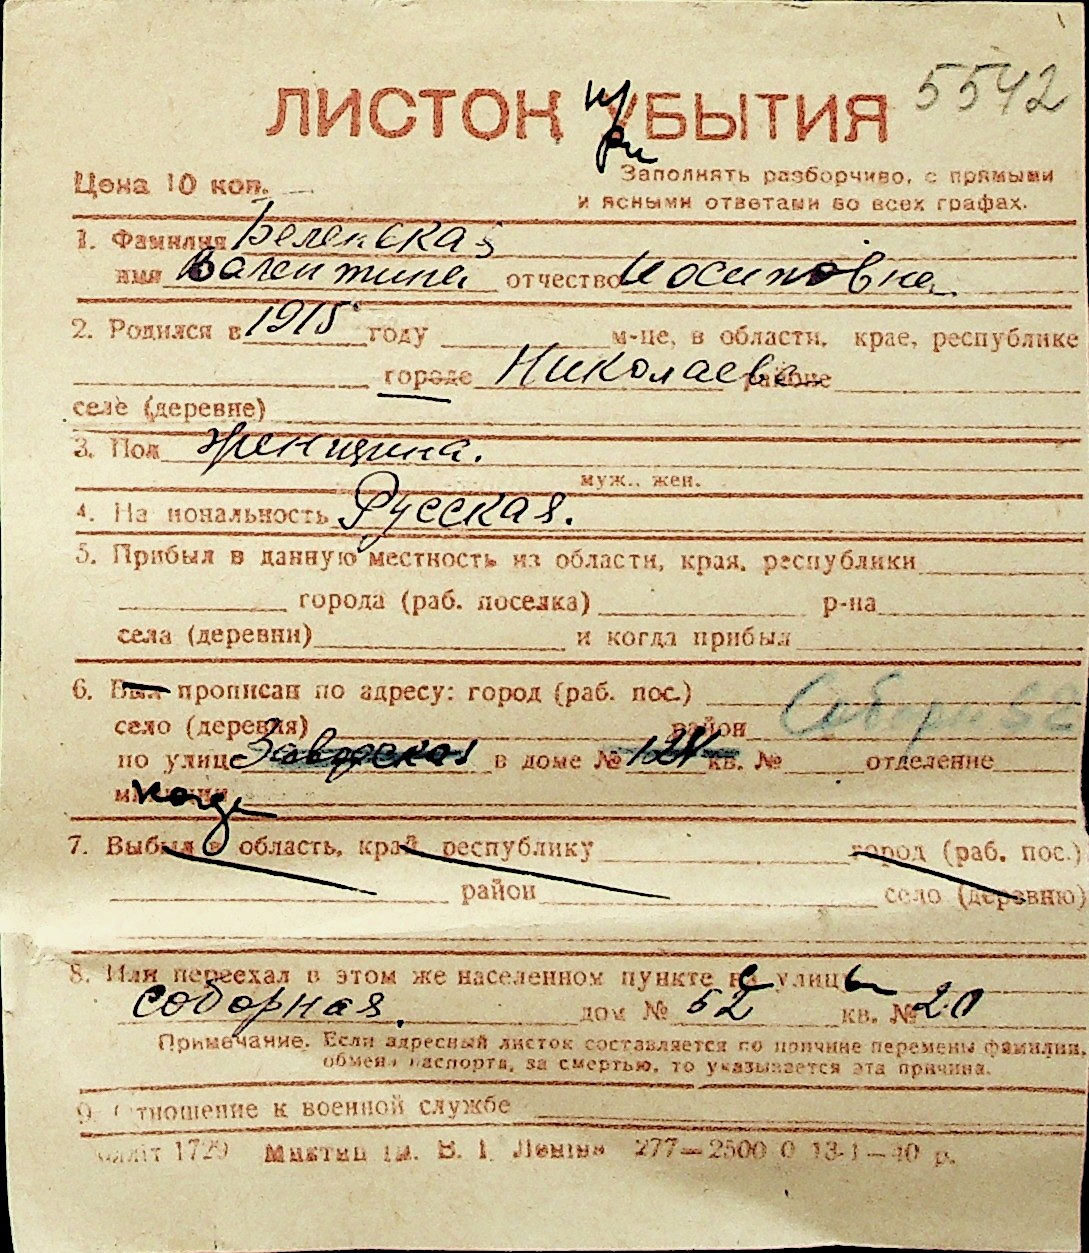 5542
ЛИСТОК УБЫТИЯ
при
Цена 10 коп.
Заполнять разборчиво, с прямыми
и ясными ответами во всех графах.
1. Фамилия Беленькая
имя Валентина отчество Иосиповна
2. Родился в 1915 году м-це, в области, крае, республике
городе Николаев районе
селе (деревне)
3. Пол женщина.
муж., жен.
4. Национальность Русская.
5. Прибыл в данную местность из области, края, республики
города (раб. поселка) р-на
села (деревни) и когда прибыл
6. Был прописан по адресу: город (раб. пос.)
село (деревня) район Соборн 52
по улице Заводская в доме № кв. № отделение
милиции
7. Выбыл в область, край, республику город (раб. пос.)
район село (деревню)
8. Или переехал в этом же населенном пункте с улицы
Соборная. дом № 52 кв. № 20
Примечание. Если адресный листок составляется по причине перемены фамилии,
обмена паспорта, за смертью, то указывается эта причина.
9. Отношение к военной службе
1729 В. І. Леніна 277—2500 0 13-І—40 р.